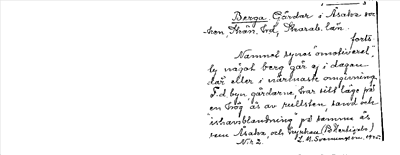 Berga. Gårdar i Åsaka soc
ken, Vrän. hd, Skarab. län.
forts.
Namnet synes "omotiverat",
ty något berg går ej i dagen
där eller i närmaste omgivning.
F.d. byn, gårdarne, har sitt läge på
en hög ås av rullsten, sand och
"ishavsblandning" på samma ås
som Åsaka, och kyrkan
No 2. L. M. Svenungsson, 1925